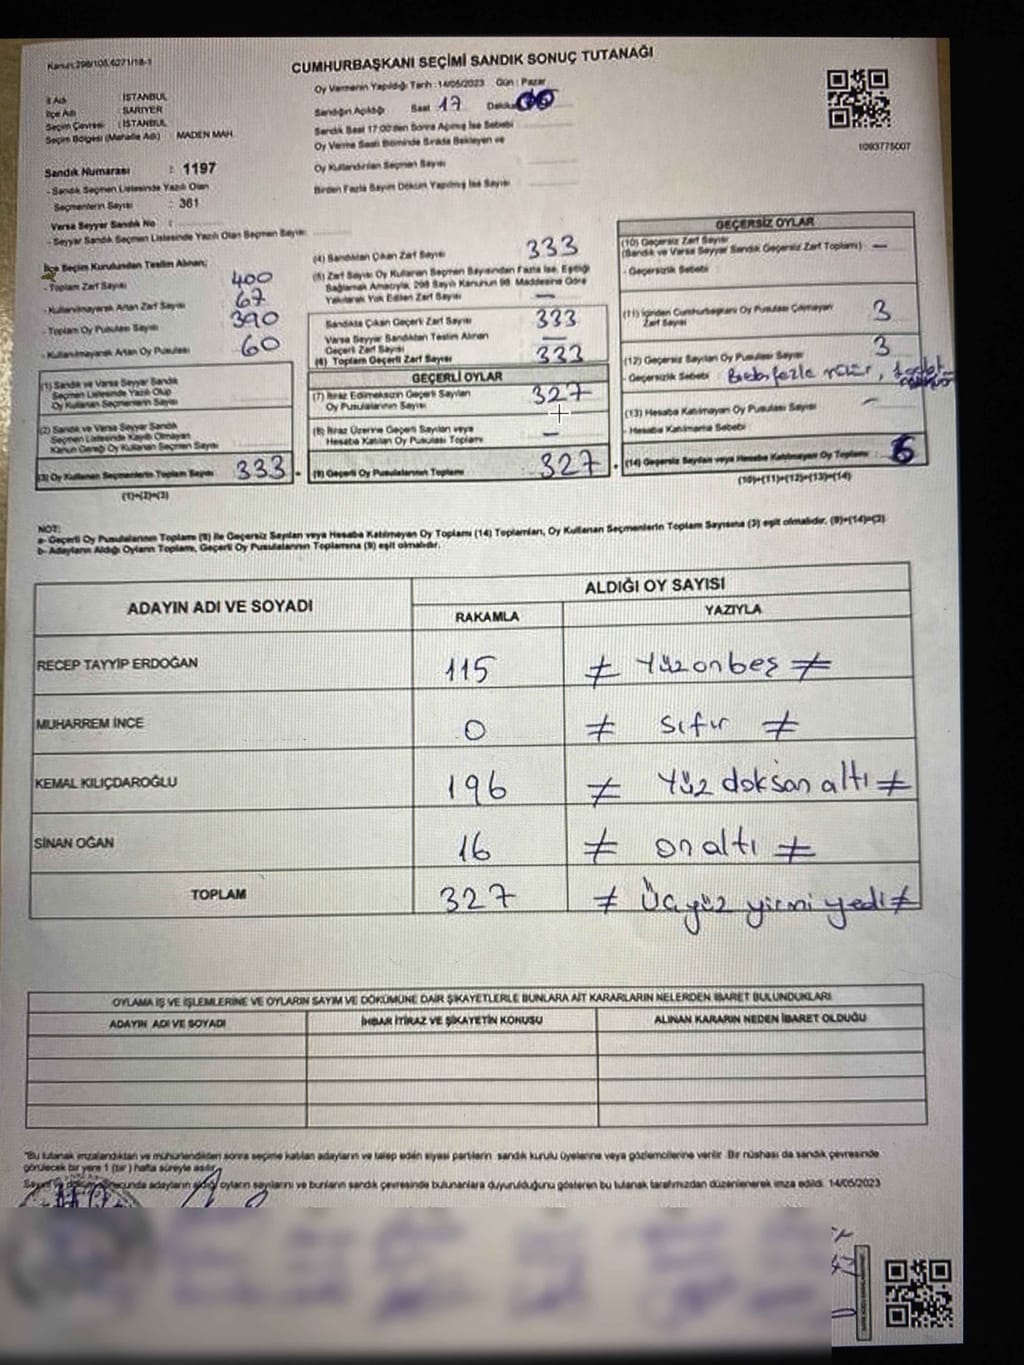 Kanun:298/105.6271/18-1
CUMHURBAŞKANI SEÇİMİ SANDIK SONUÇ TUTANAĞI
İl Adı : İSTANBUL
İlçe Adı : SARIYER
Seçim Çevresi : İSTANBUL
Seçim Bölgesi (Mahalle Adı) : MADEN MAH.
Sandık Numarası : 1197
- Sandık Seçmen Listesinde Yazılı Olan
Seçmenlerin Sayısı : 361
Varsa Seyyar Sandık No :
- Seyyar Sandık Seçmen Listesinde Yazılı Olan Seçmen Sayısı :
Oy Vermenin Yapıldığı Tarih : 14/05/2023 Gün : Pazar
Sandığın Açıldığı Saat 17 Dakika 00
Sandık Saat 17:00'den Sonra Açılmış İse Sebebi :
Oy Verme Saati Bitiminde Sırada Bekleyen ve
Oy Kullandırılan Seçmen Sayısı :
Birden Fazla Sayım Döküm Yapılmış İse Sayısı :
1093775007
İlçe Seçim Kurulundan Teslim Alınan;
- Toplam Zarf Sayısı 400
- Kullanılmayarak Artan Zarf Sayısı 67
- Toplam Oy Pusulası Sayısı 390
- Kullanılmayarak Artan Oy Pusulası 60
(1) Sandık ve Varsa Seyyar Sandık
Seçmen Listesinde Yazılı Olup
Oy Kullanan Seçmenlerin Sayısı
(2) Sandık ve Varsa Seyyar Sandık
Seçmen Listesinde Kayıtlı Olmayan
Kanun Gereği Oy Kullanan Seçmen Sayısı
(3) Oy Kullanan Seçmenlerin Toplam Sayısı 333 =
(1)+(2)=(3)
(4) Sandıktan Çıkan Zarf Sayısı 333
(5) Zarf Sayısı Oy Kullanan Seçmen Sayısından Fazla İse, Eşitliği
Sağlamak Amacıyla, 298 Sayılı Kanunun 98. Maddesine Göre
Yakılarak Yok Edilen Zarf Sayısı —
Sandıkta Çıkan Geçerli Zarf Sayısı 333
Varsa Seyyar Sandıktan Teslim Alınan
Geçerli Zarf Sayısı —
(6) Toplam Geçerli Zarf Sayısı 333
GEÇERLİ OYLAR
(7) İtiraz Edilmeksizin Geçerli Sayılan
Oy Pusulalarının Sayısı 327
(8) İtiraz Üzerine Geçerli Sayılan veya
Hesaba Katılan Oy Pusulası Toplamı —
(9) Geçerli Oy Pusulalarının Toplamı 327 +
GEÇERSİZ OYLAR
(10) Geçersiz Zarf Sayısı
(Sandık ve Varsa Seyyar Sandık Geçersiz Zarf Toplamı) —
- Geçersizlik Sebebi :
(11) İçinden Cumhurbaşkanı Oy Pusulası Çıkmayan
Zarf Sayısı 3
(12) Geçersiz Sayılan Oy Pusulası Sayısı 3
- Geçersizlik Sebebi :
(13) Hesaba Katılmayan Oy Pusulası Sayısı —
- Hesaba Katılmama Sebebi
(14) Geçersiz Sayılan veya Hesaba Katılmayan Oy Toplamı : 6
(10)+(11)+(12)+(13)=(14)
NOT:
a- Geçerli Oy Pusulalarının Toplamı (9) ile Geçersiz Sayılan veya Hesaba Katılmayan Oy Toplamı (14) Toplamları, Oy Kullanan Seçmenlerin Toplam Sayısına (3) eşit olmalıdır. (9)+(14)=(3)
b- Adayların Aldığı Oyların Toplamı, Geçerli Oy Pusulalarının Toplamına (9) eşit olmalıdır.
ADAYIN ADI VE SOYADI ALDIĞI OY SAYISI
RAKAMLA YAZIYLA
RECEP TAYYİP ERDOĞAN 115 ≠ Yüzonbeş ≠
MUHARREM İNCE 0 ≠ sıfır ≠
KEMAL KILIÇDAROĞLU 196 ≠ Yüz doksan altı ≠
SİNAN OĞAN 16 ≠ on altı ≠
TOPLAM 327 ≠ Üçyüz yirmi yedi ≠
OYLAMA İŞ VE İŞLEMLERİNE VE OYLARIN SAYIM VE DÖKÜMÜNE DAİR ŞİKAYETLERLE BUNLARA AİT KARARLARIN NELERDEN İBARET BULUNDUKLARI
ADAYIN ADI VE SOYADI İHBAR İTİRAZ VE ŞİKAYETİN KONUSU ALINAN KARARIN NEDEN İBARET OLDUĞU
"Bu tutanak imzalandıktan ve mühürlendikten sonra seçime katılan adayların ve talep eden siyasi partilerin sandık kurulu üyelerine veya gözlemcilerine verilir. Bir nüshası da sandık çevresinde
görülecek bir yere 1 (bir) hafta süreyle asılır.
Sayım ve döküm sonucunda adayların aldığı oyların sayılarını ve bunların sandık çevresinde bulunanlara duyurulduğunu gösteren bu tutanak tarafımızdan düzenlenerek imza edildi. 14/05/2023